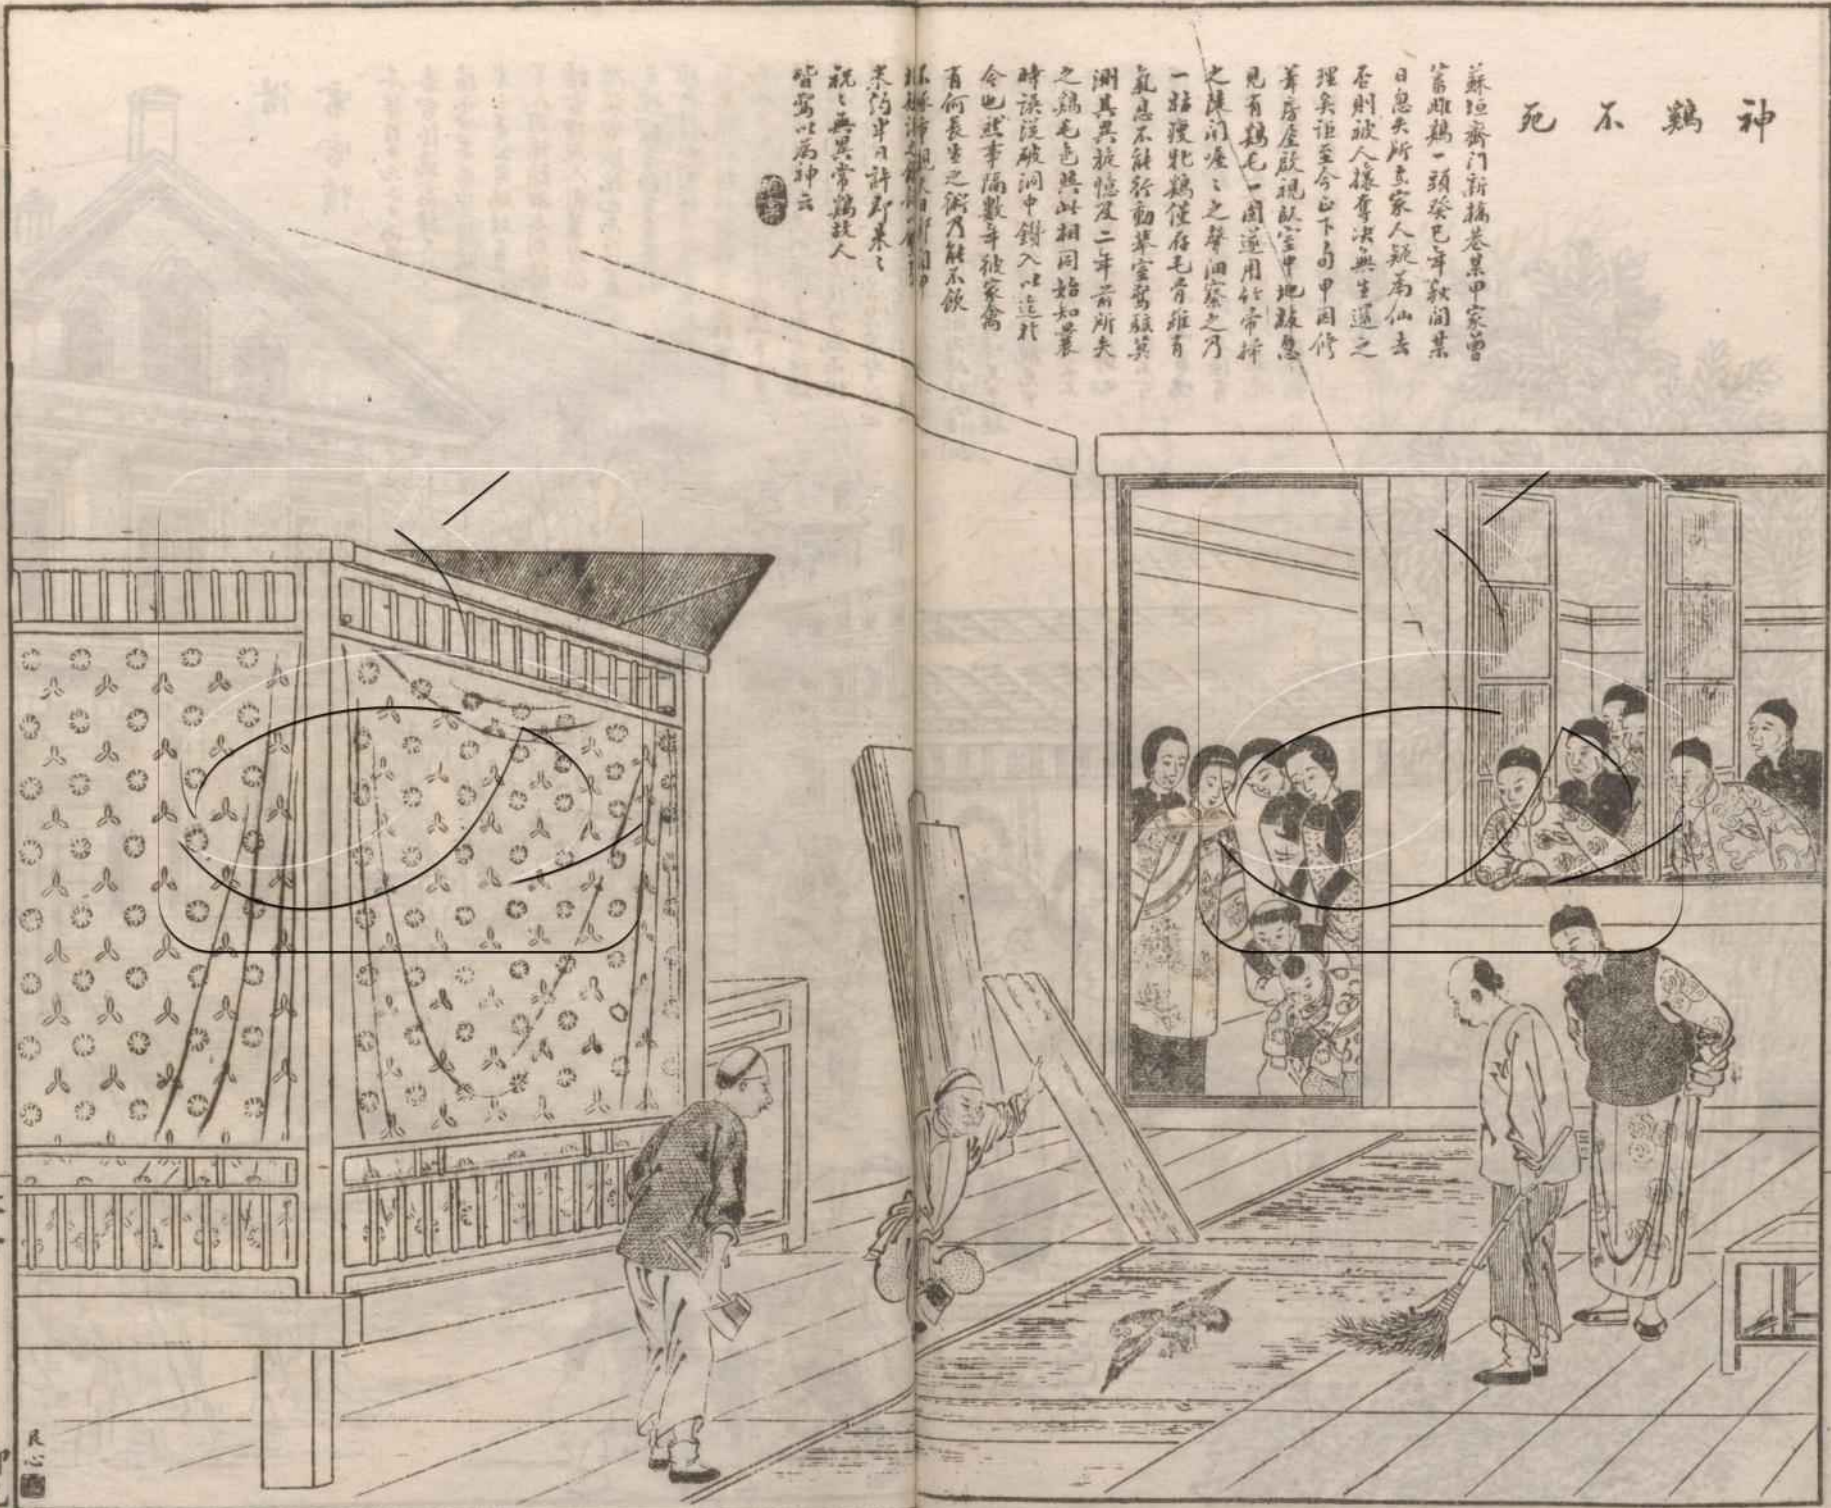 神鷄不死
蘇垣齊门新橋巷某甲家曾
蓄雌鷄一頭癸巳年秋间某
日忽失所在家人疑為仙去
否則被人攘奪决無生還之
理矣詎至今正下旬甲因修
葺房屋啟視臥室中地板忽
見有鷄毛一團遂用竹帚掃
之陡闻喔〻之聲细察之乃
一枯瘦牝鷄僅存毛骨雖有
氣息不能行動舉室驚駭莫
測其異旋憶及二年前所失
之鷄毛色與此相同始知曩
時误從破洞中鑽入以迄於
今也然事隔數年彼家禽
有何長生之術乃能不飲
米约半月許即朱〻
祝〻無異常鷄故人
皆驚以為神云
艮心